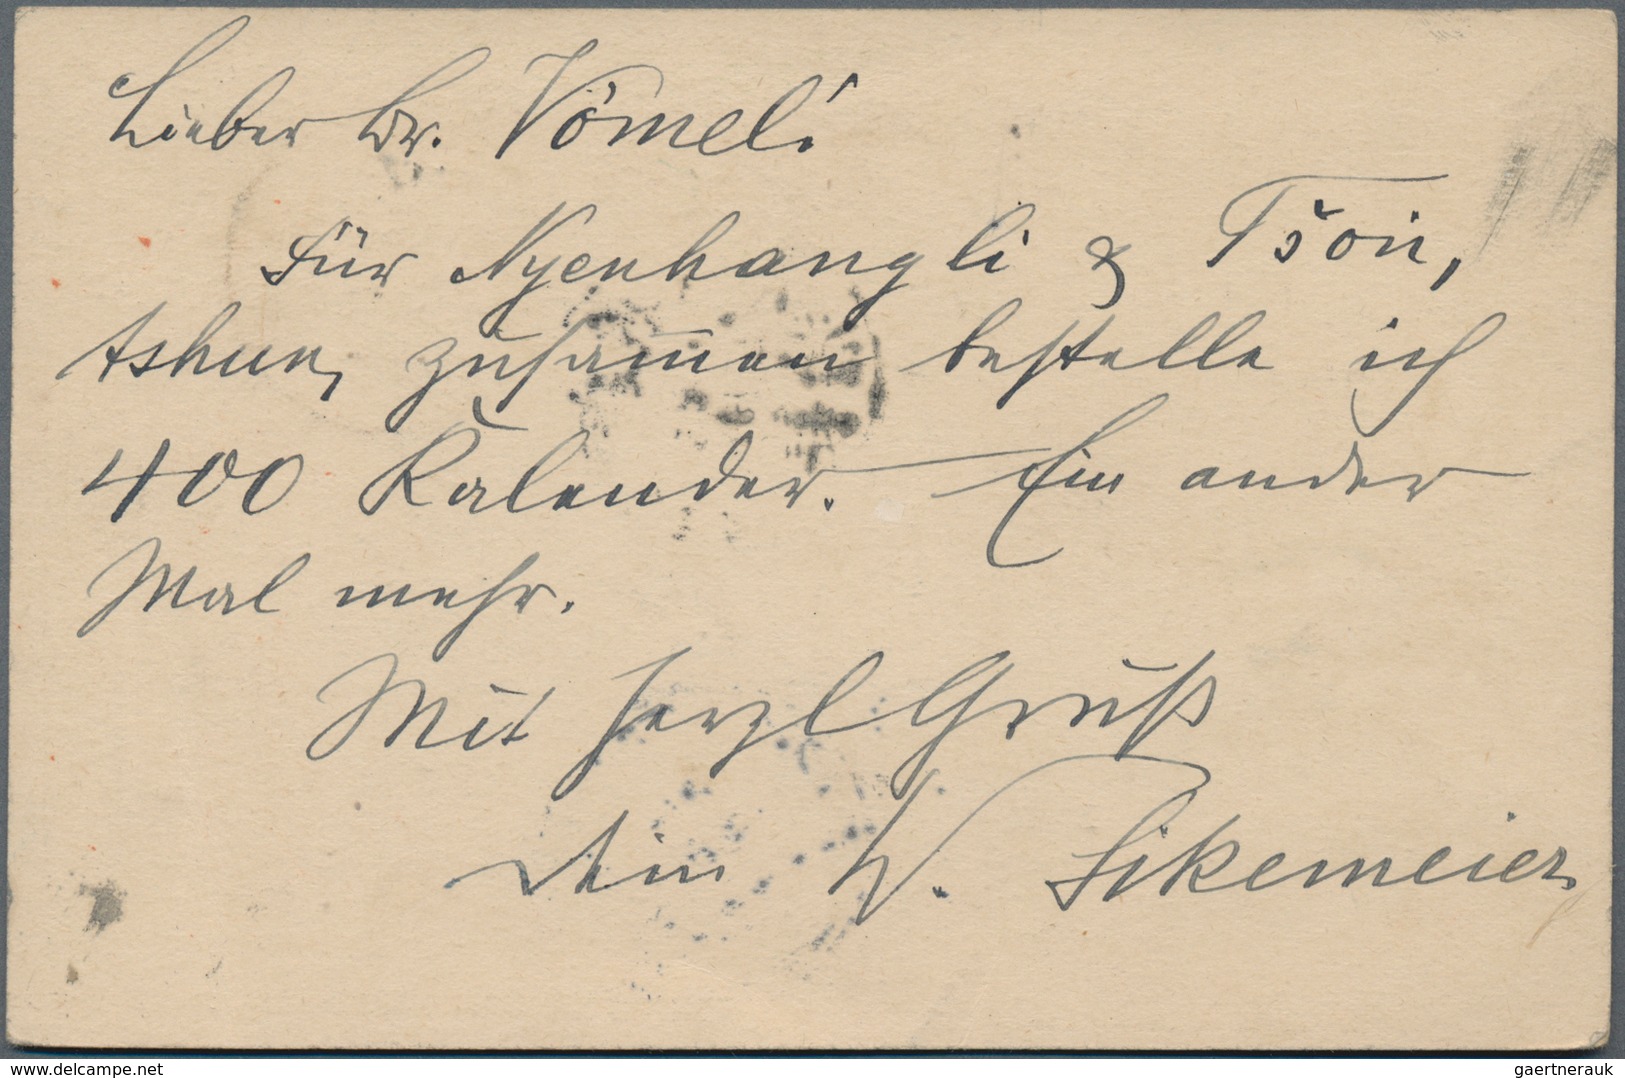 Lieber Br. Vömel!
Für Nyenhangli & Tšoń,
tshun, zusammen bestelle ich
400 Kalender. Ein ander
Mal mehr.
Mit herzl Gruß
Dein W. Sikemeier.
delcampe.net
gaertnerauk